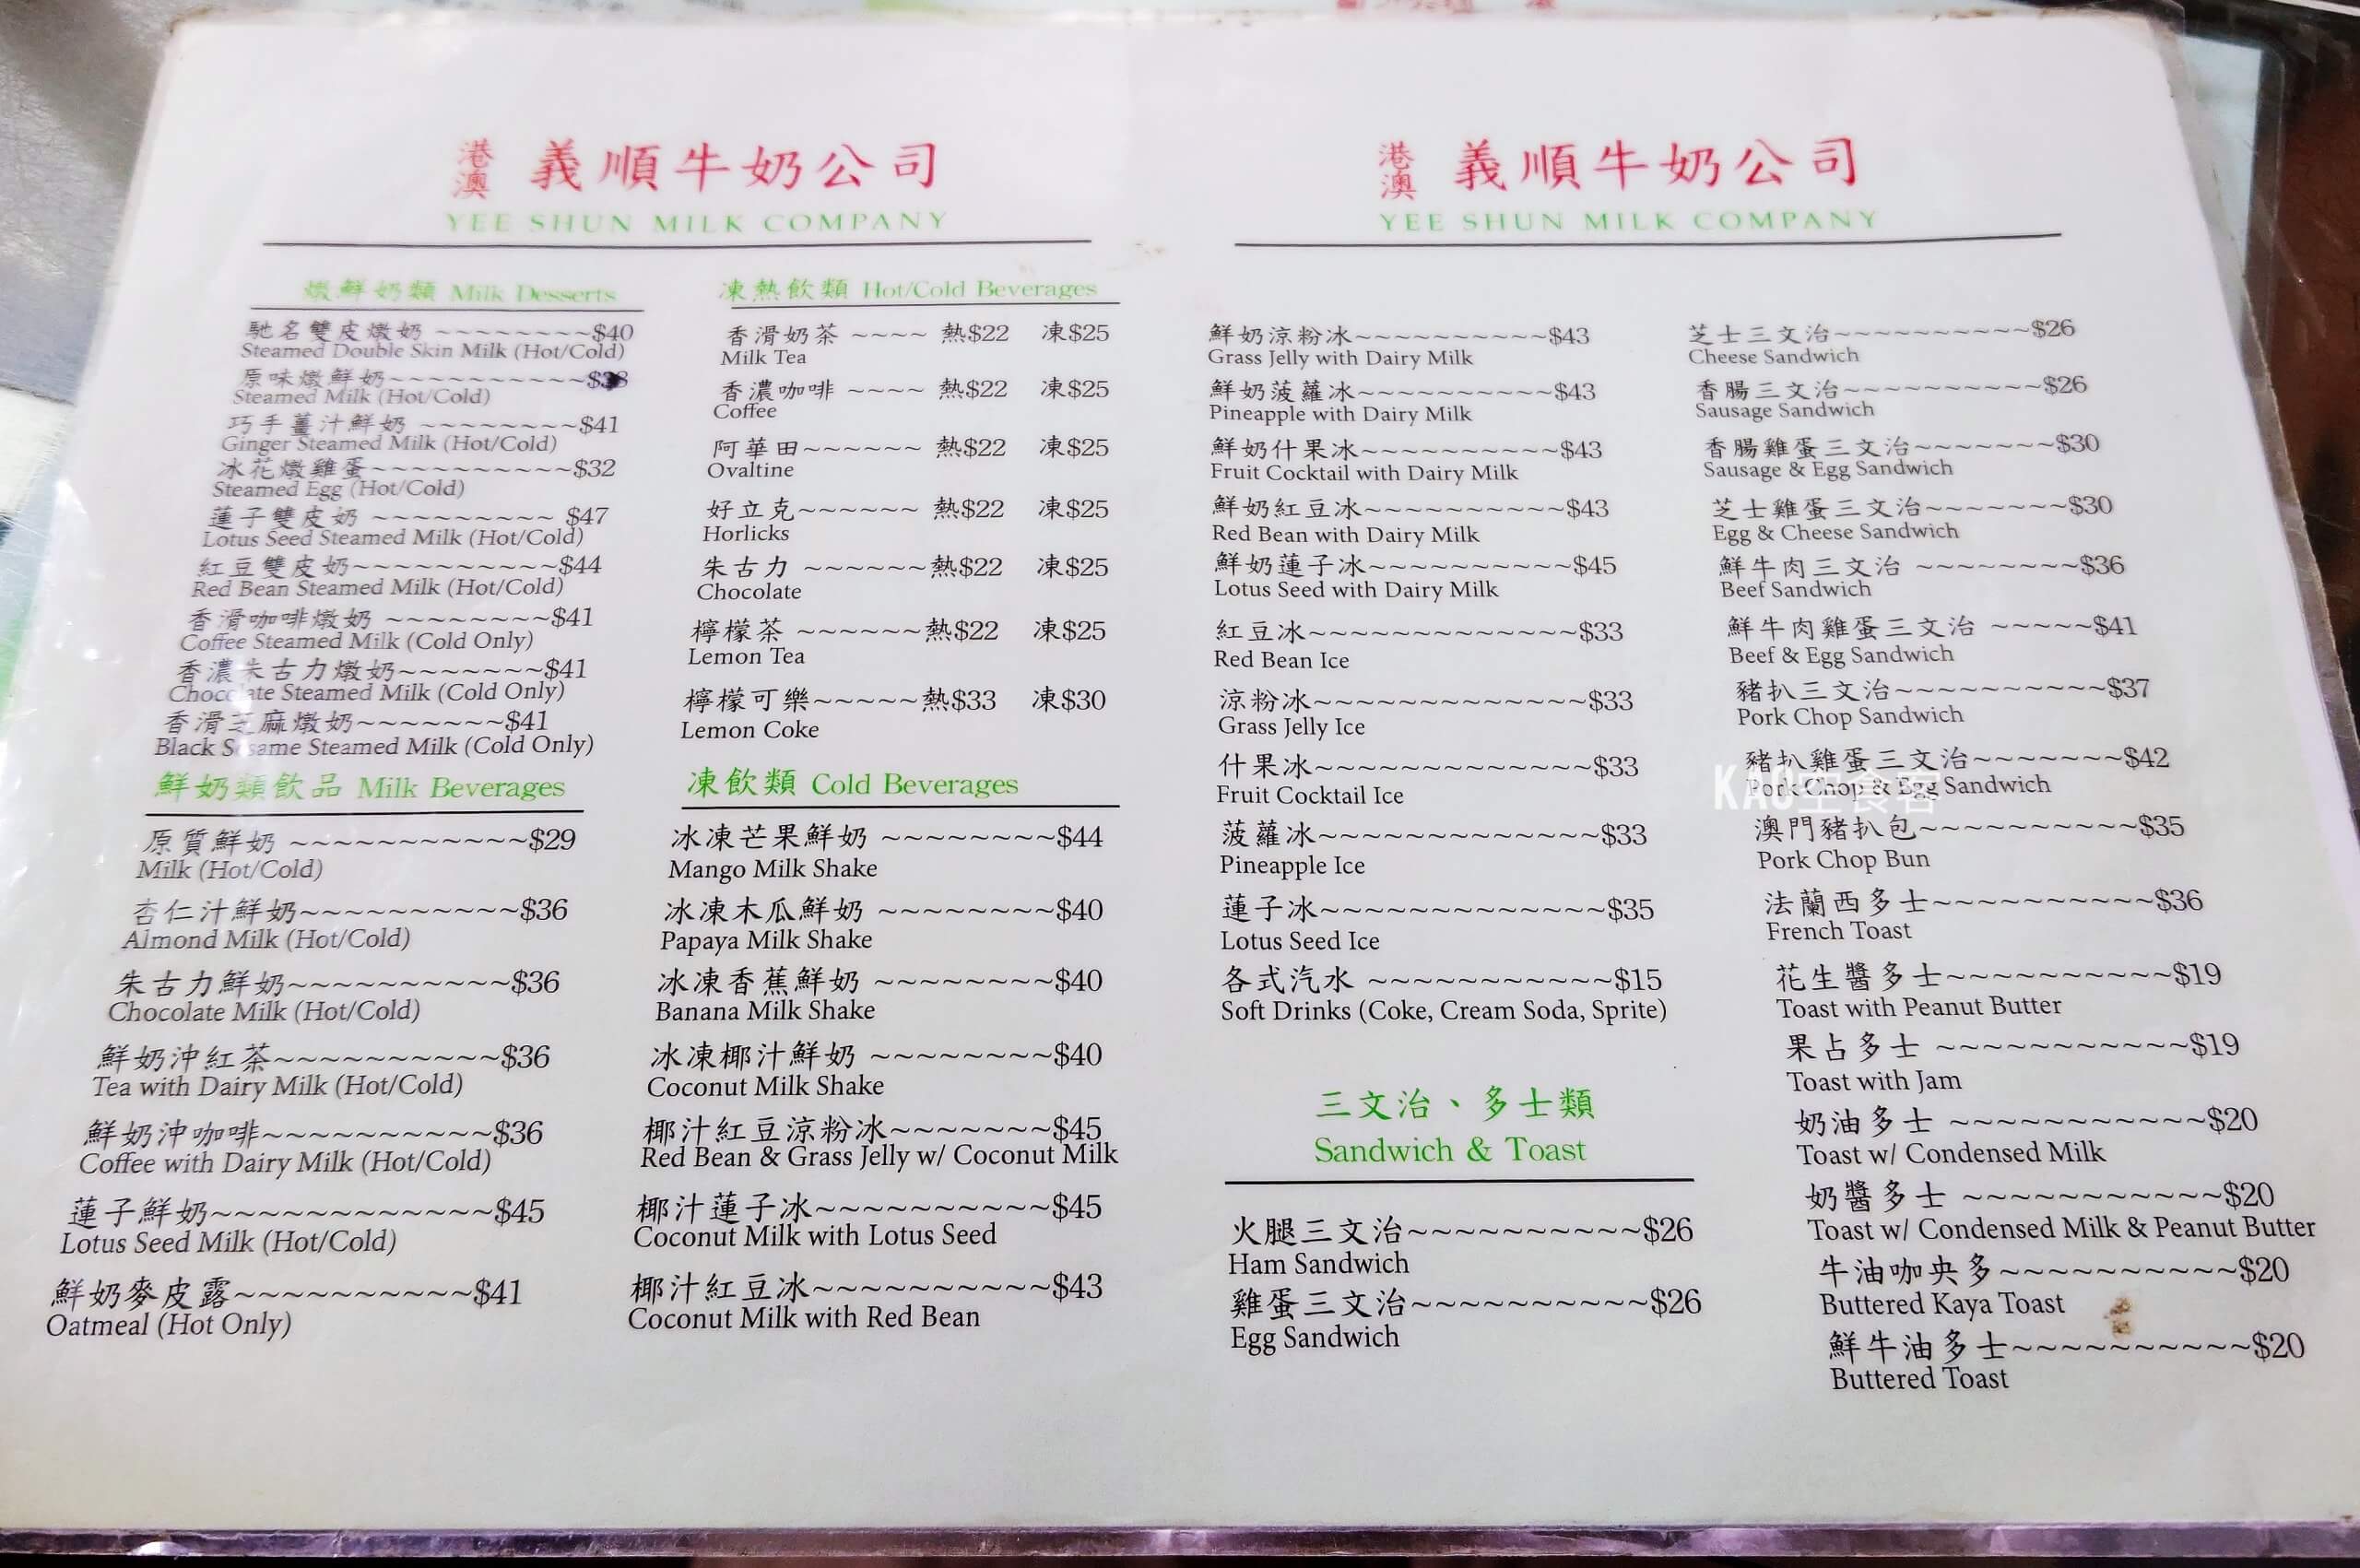 港澳 義順牛奶公司
YEE SHUN MILK COMPANY
燉鮮奶類 Milk Desserts
馳名雙皮燉奶 ~~~~~~~~$40
Steamed Double Skin Milk (Hot/Cold)
原味燉鮮奶~~~~~~~~~~
Steamed Milk (Hot/Cold)
巧手薑汁鮮奶 ~~~~~~~~$41
Ginger Steamed Milk (Hot/Cold)
冰花燉雞蛋~~~~~~~~~~$32
Steamed Egg (Hot/Cold)
蓮子雙皮奶 ~~~~~~~~~ $47
Lotus Seed Steamed Milk (Hot/Cold)
紅豆雙皮奶~~~~~~~~~~$44
Red Bean Steamed Milk (Hot/Cold)
香滑咖啡燉奶 ~~~~~~~~$41
Coffee Steamed Milk (Cold Only)
香濃朱古力燉奶~~~~~~~$41
Chocolate Steamed Milk (Cold Only)
香滑芝麻燉奶~~~~~~~$41
Black Sesame Steamed Milk (Cold Only)
鮮奶類飲品 Milk Beverages
原質鮮奶 ~~~~~~~~~~~$29
Milk (Hot/Cold)
杏仁汁鮮奶~~~~~~~~~~$36
Almond Milk (Hot/Cold)
朱古力鮮奶~~~~~~~~~~$36
Chocolate Milk (Hot/Cold)
鮮奶沖紅茶~~~~~~~~~~$36
Tea with Dairy Milk (Hot/Cold)
鮮奶沖咖啡~~~~~~~~~~$36
Coffee with Dairy Milk (Hot/Cold)
蓮子鮮奶~~~~~~~~~~~~$45
Lotus Seed Milk (Hot/Cold)
鮮奶麥皮露~~~~~~~~~~$41
Oatmeal (Hot Only)
凍熱飲類 Hot/Cold Beverages
香滑奶茶 ~~~~ 熱$22 凍$25
Milk Tea
香濃咖啡 ~~~~ 熱$22 凍$25
Coffee
阿華田~~~~~~ 熱$22 凍$25
Ovaltine
好立克~~~~~~ 熱$22 凍$25
Horlicks
朱古力 ~~~~~~熱$22 凍$25
Chocolate
檸檬茶 ~~~~~~熱$22 凍$25
Lemon Tea
檸檬可樂~~~~~熱$33 凍$30
Lemon Coke
凍飲類 Cold Beverages
冰凍芒果鮮奶 ~~~~~~~~$44
Mango Milk Shake
冰凍木瓜鮮奶 ~~~~~~~~$40
Papaya Milk Shake
冰凍香蕉鮮奶 ~~~~~~~~$40
Banana Milk Shake
冰凍椰汁鮮奶 ~~~~~~~~$40
Coconut Milk Shake
椰汁紅豆涼粉冰~~~~~~~$45
Red Bean & Grass Jelly w/ Coconut Milk
椰汁蓮子冰~~~~~~~~~~$45
Coconut Milk with Lotus Seed
椰汁紅豆冰~~~~~~~~~~$43
Coconut Milk with Red Bean
港澳 義順牛奶公司
YEE SHUN MILK COMPANY
鮮奶涼粉冰~~~~~~~~~~$43
Grass Jelly with Dairy Milk
鮮奶菠蘿冰~~~~~~~~~~$43
Pineapple with Dairy Milk
鮮奶什果冰~~~~~~~~~~$43
Fruit Cocktail with Dairy Milk
鮮奶紅豆冰~~~~~~~~~~$43
Red Bean with Dairy Milk
鮮奶蓮子冰~~~~~~~~~~$45
Lotus Seed with Dairy Milk
紅豆冰~~~~~~~~~~~~~$33
Red Bean Ice
涼粉冰~~~~~~~~~~~~~$33
Grass Jelly Ice
什果冰~~~~~~~~~~~~~$33
Fruit Cocktail Ice
菠蘿冰~~~~~~~~~~~~~$33
Pineapple Ice
蓮子冰~~~~~~~~~~~~~$35
Lotus Seed Ice
各式汽水 ~~~~~~~~~~~$15
Soft Drinks (Coke, Cream Soda, Sprite)
三文治、多士類
Sandwich & Toast
火腿三文治~~~~~~~~~~$26
Ham Sandwich
雞蛋三文治~~~~~~~~~~$26
Egg Sandwich
芝士三文治~~~~~~~~~~$26
Cheese Sandwich
香腸三文治~~~~~~~~~~$26
Sausage Sandwich
香腸雞蛋三文治~~~~~~~$30
Sausage & Egg Sandwich
芝士雞蛋三文治~~~~~~~$30
Egg & Cheese Sandwich
鮮牛肉三文治 ~~~~~~~~$36
Beef Sandwich
鮮牛肉雞蛋三文治 ~~~~~$41
Beef & Egg Sandwich
豬扒三文治~~~~~~~~~~$37
Pork Chop Sandwich
豬扒雞蛋三文治~~~~~~~$42
Pork Chop & Egg Sandwich
KAO空食客
澳門豬扒包~~~~~~~~~~$35
Pork Chop Bun
法蘭西多士~~~~~~~~~~$36
French Toast
花生醬多士~~~~~~~~~~$19
Toast with Peanut Butter
果占多士 ~~~~~~~~~~~$19
Toast with Jam
奶油多士 ~~~~~~~~~~~$20
Toast w/ Condensed Milk
奶醬多士 ~~~~~~~~~~~$20
Toast w/ Condensed Milk & Peanut Butter
牛油咖央多~~~~~~~~~~$20
Buttered Kaya Toast
鮮牛油多士~~~~~~~~~~$20
Buttered Toast